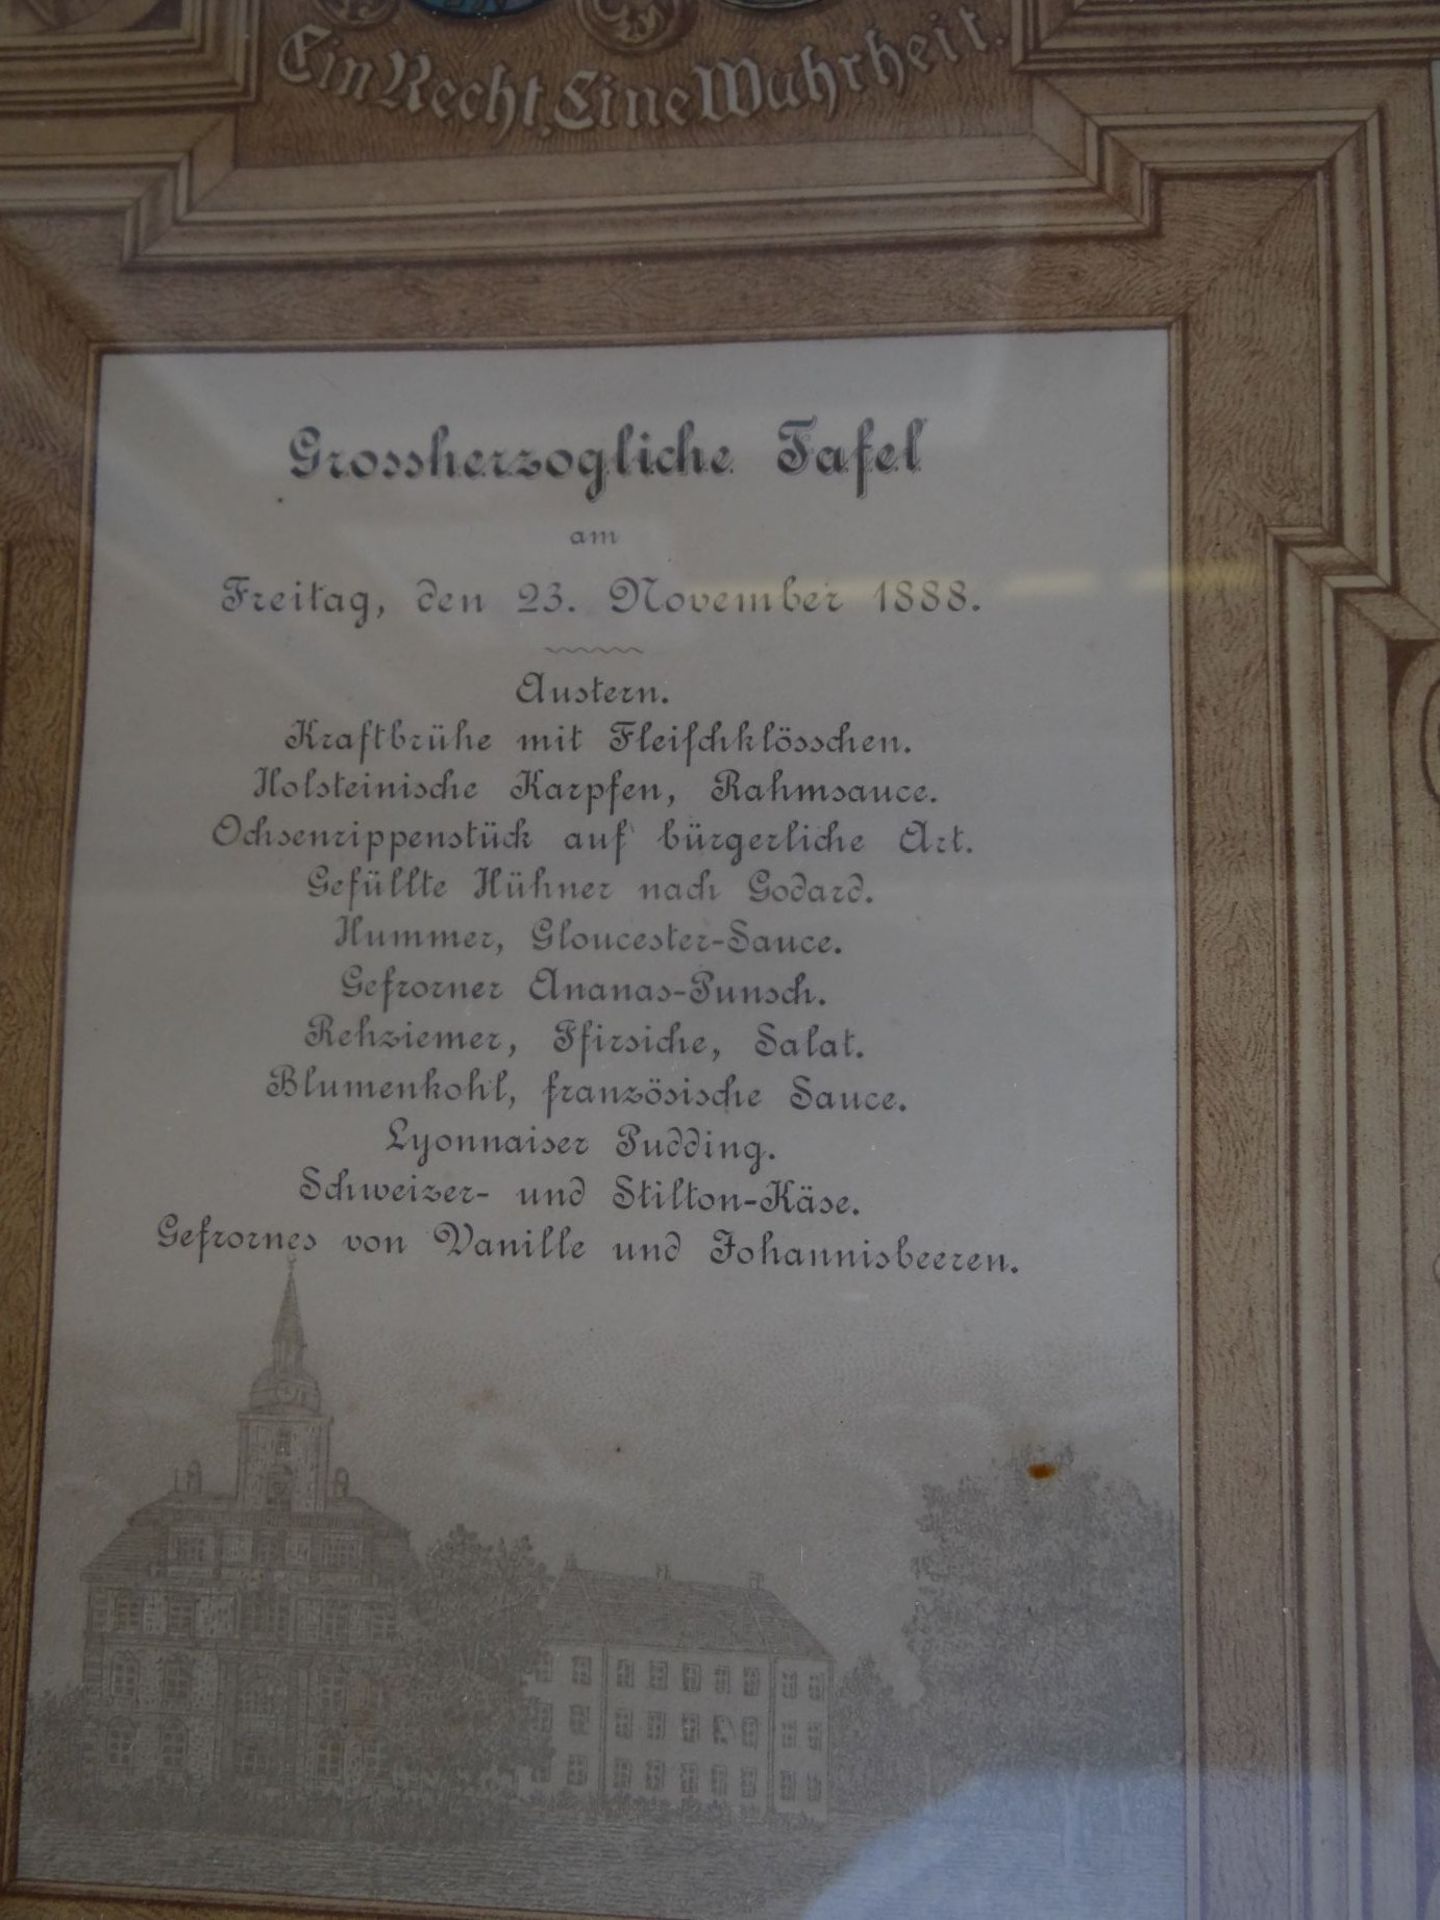 Ein Recht, Eine Wahrheit.
Grossherzogliche Tafel
am
Freitag, den 23. November 1888.
Austern.
Kraftbrühe mit Fleischklösschen.
Holsteinische Karpfen, Rahmsauce.
Ochsenrippenstück auf bürgerliche Art.
Gefüllte Hühner nach Godard.
Hummer, Gloucester-Sauce.
Gefrorner Ananas-Punsch.
Rehziemer, Pfirsiche, Salat.
Blumenkohl, französische Sauce.
Lyonnaiser Pudding.
Schweizer- und Stilton-Käse.
Gefrornes von Vanille und Johannisbeeren.